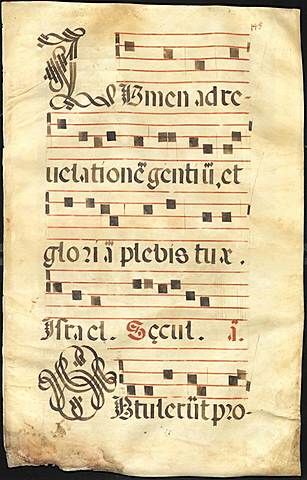 LVmen ad re-
uelationē gentiū, et
gloriā plebis tuæ.
Israel. Sęcul. ā.
OBtulerūt pro-